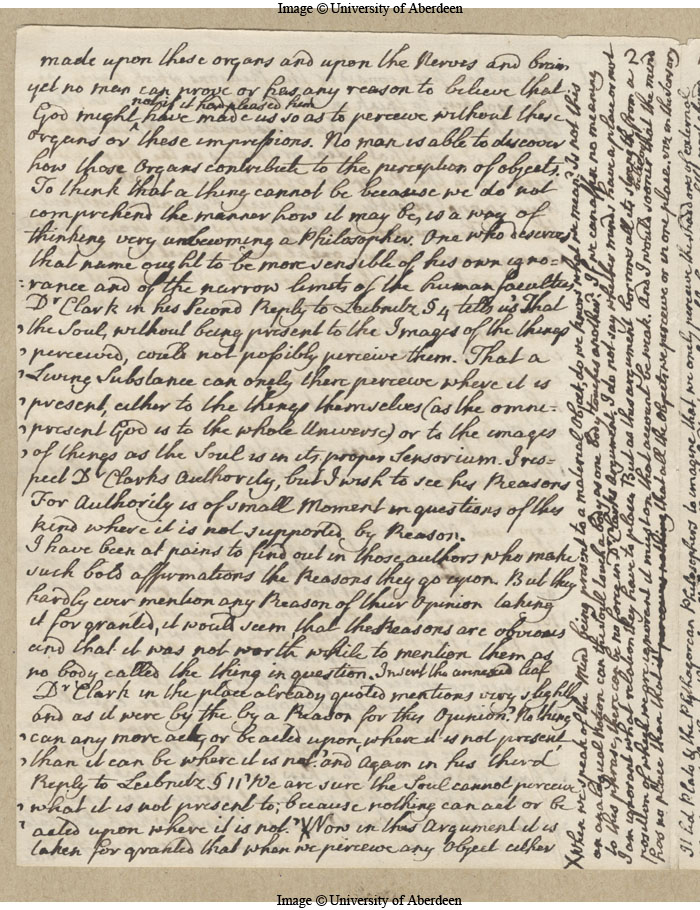 Image © University of Aberdeen
made upon these organs and upon the Nerves and brain
yet no man can prove or has any reason to believe that
not if it had pleased him
God might have made us so as to perceive without these
Organs or these impressions. No man is able to discover
how those Organs contribute to the perception of objects.
To think that a thing cannot be because we do not
comprehend the manner how it may be, is a way of
thinking very unbecoming a Philosopher. One who deserves
that name ought to be more sensible of his own igno-
rance and of the narrow limits of the human faculties
Dr Clark in his Second Reply to Leibnitz § 4 tells us That
the Soul, without being present to the Images of the things
perceived, could not possibly perceive them. That a
Living Substance can onely there perceive where it is
present, either to the things themselves (as the omni-
present God is to the whole Universe) or to the images
of things as the Soul is in its proper Sensorium. I res-
pect Dr Clarks Authority, but I wish to see his Reasons
For Authority is of small Moment in questions of this
kind where it is not supported by Reason.
I have been at pains to find out in those authors who make
such bold affirmations the Reasons they go upon. But they
hardly ever mention any Reason of their Opinion taking
it for granted, it would seem, that the Reasons are obvious
and that it was not worth while to mention them as
no body called the thing in question. Insert the annexed leaf
Dr Clark in the place already quoted mentions very slightly
and as it were by the by a Reason for this Opinion. Nothing
can any more act, or be acted upon, where it is not present
than it can be where it is not. and again in his third
Reply to Leibnitz § 11 We are sure the Soul cannot perceive
what it is not present to; because nothing can act or be
acted upon where it is not. X Now in this Argument it is
taken for granted that when we perceive any Object either
X When we speak of the Mind being present to a material Object, do we know what we mean? Is not this
an analogical Notion can the Soul touch a body as one body touches another. If we can affix no meaning
to this phrase, there can be no force in Dr Clarks Argument. I do not say whether minds have a place or not
I am ignorant what relation they have to place. But as this argument borrows all its strength from a
relation of which we are ignorant it must on that account be weak. And I would sooner that the mind
has no place than that all the objects we perceive are in one place, viz in the Sensory
2
Image © University of Aberdeen